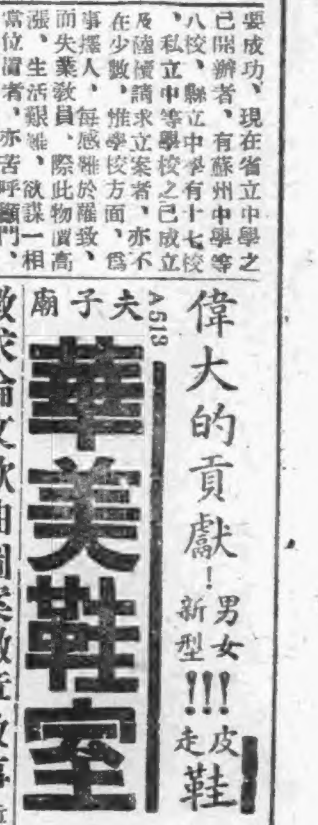 要成功、現在省立中學之
已開辦者、有蘇州中學等
八校、縣立中學有十七校
、私立中等學校之已成立
及陸續請求立案者、亦不
在少數、惟學校方面、爲
事擇人、每感難於羅致、
而失業教員、際此物價高
漲、生活艱難、欲謀一相
當位置者、亦苦呼籲門、
偉大的貢獻!
男女
新型
!!!
皮
走
鞋
A513
夫子廟
華美鞋室